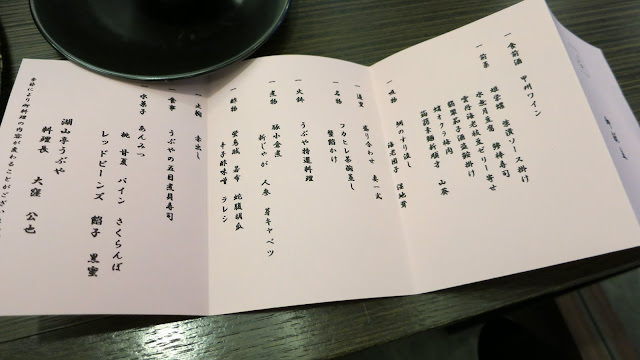 一 食前酒 甲州ワイン
一 前菜
雄栄螺 楽漬ソース掛け
水無月豆腐 鱒棒寿司
雲丹海老枝豆ゼリー寄せ
翡翠茄子酒盗餡掛け
蛸オクラ梅肉
蒟蒻素麺新順才 山葵
一 吸物 鯛のすり流し
海老団子 湿地茸
一 造里 盛り合わせ 妻一式
一 名物 フカヒレ茶碗蒸し
蟹餡かけ
一 火鉢 うぶや特選料理
一 煮物 豚小金煮
新じゃが 人参 芽キャベツ
一 酢物 蛍烏賊 若布 蛇腹胡瓜
辛子酢味噌 ラレシ
一 止椀 赤出し
一 食事 うぶやの五目煮貝寿司
一 水菓子 あんみつ
桃 甘夏 パイン さくらんぼ
レッドビーンズ 餡子 黒蜜
湖山亭うぶや
料理長 大窪 公也
季節により御料理の内容が変わることがござい